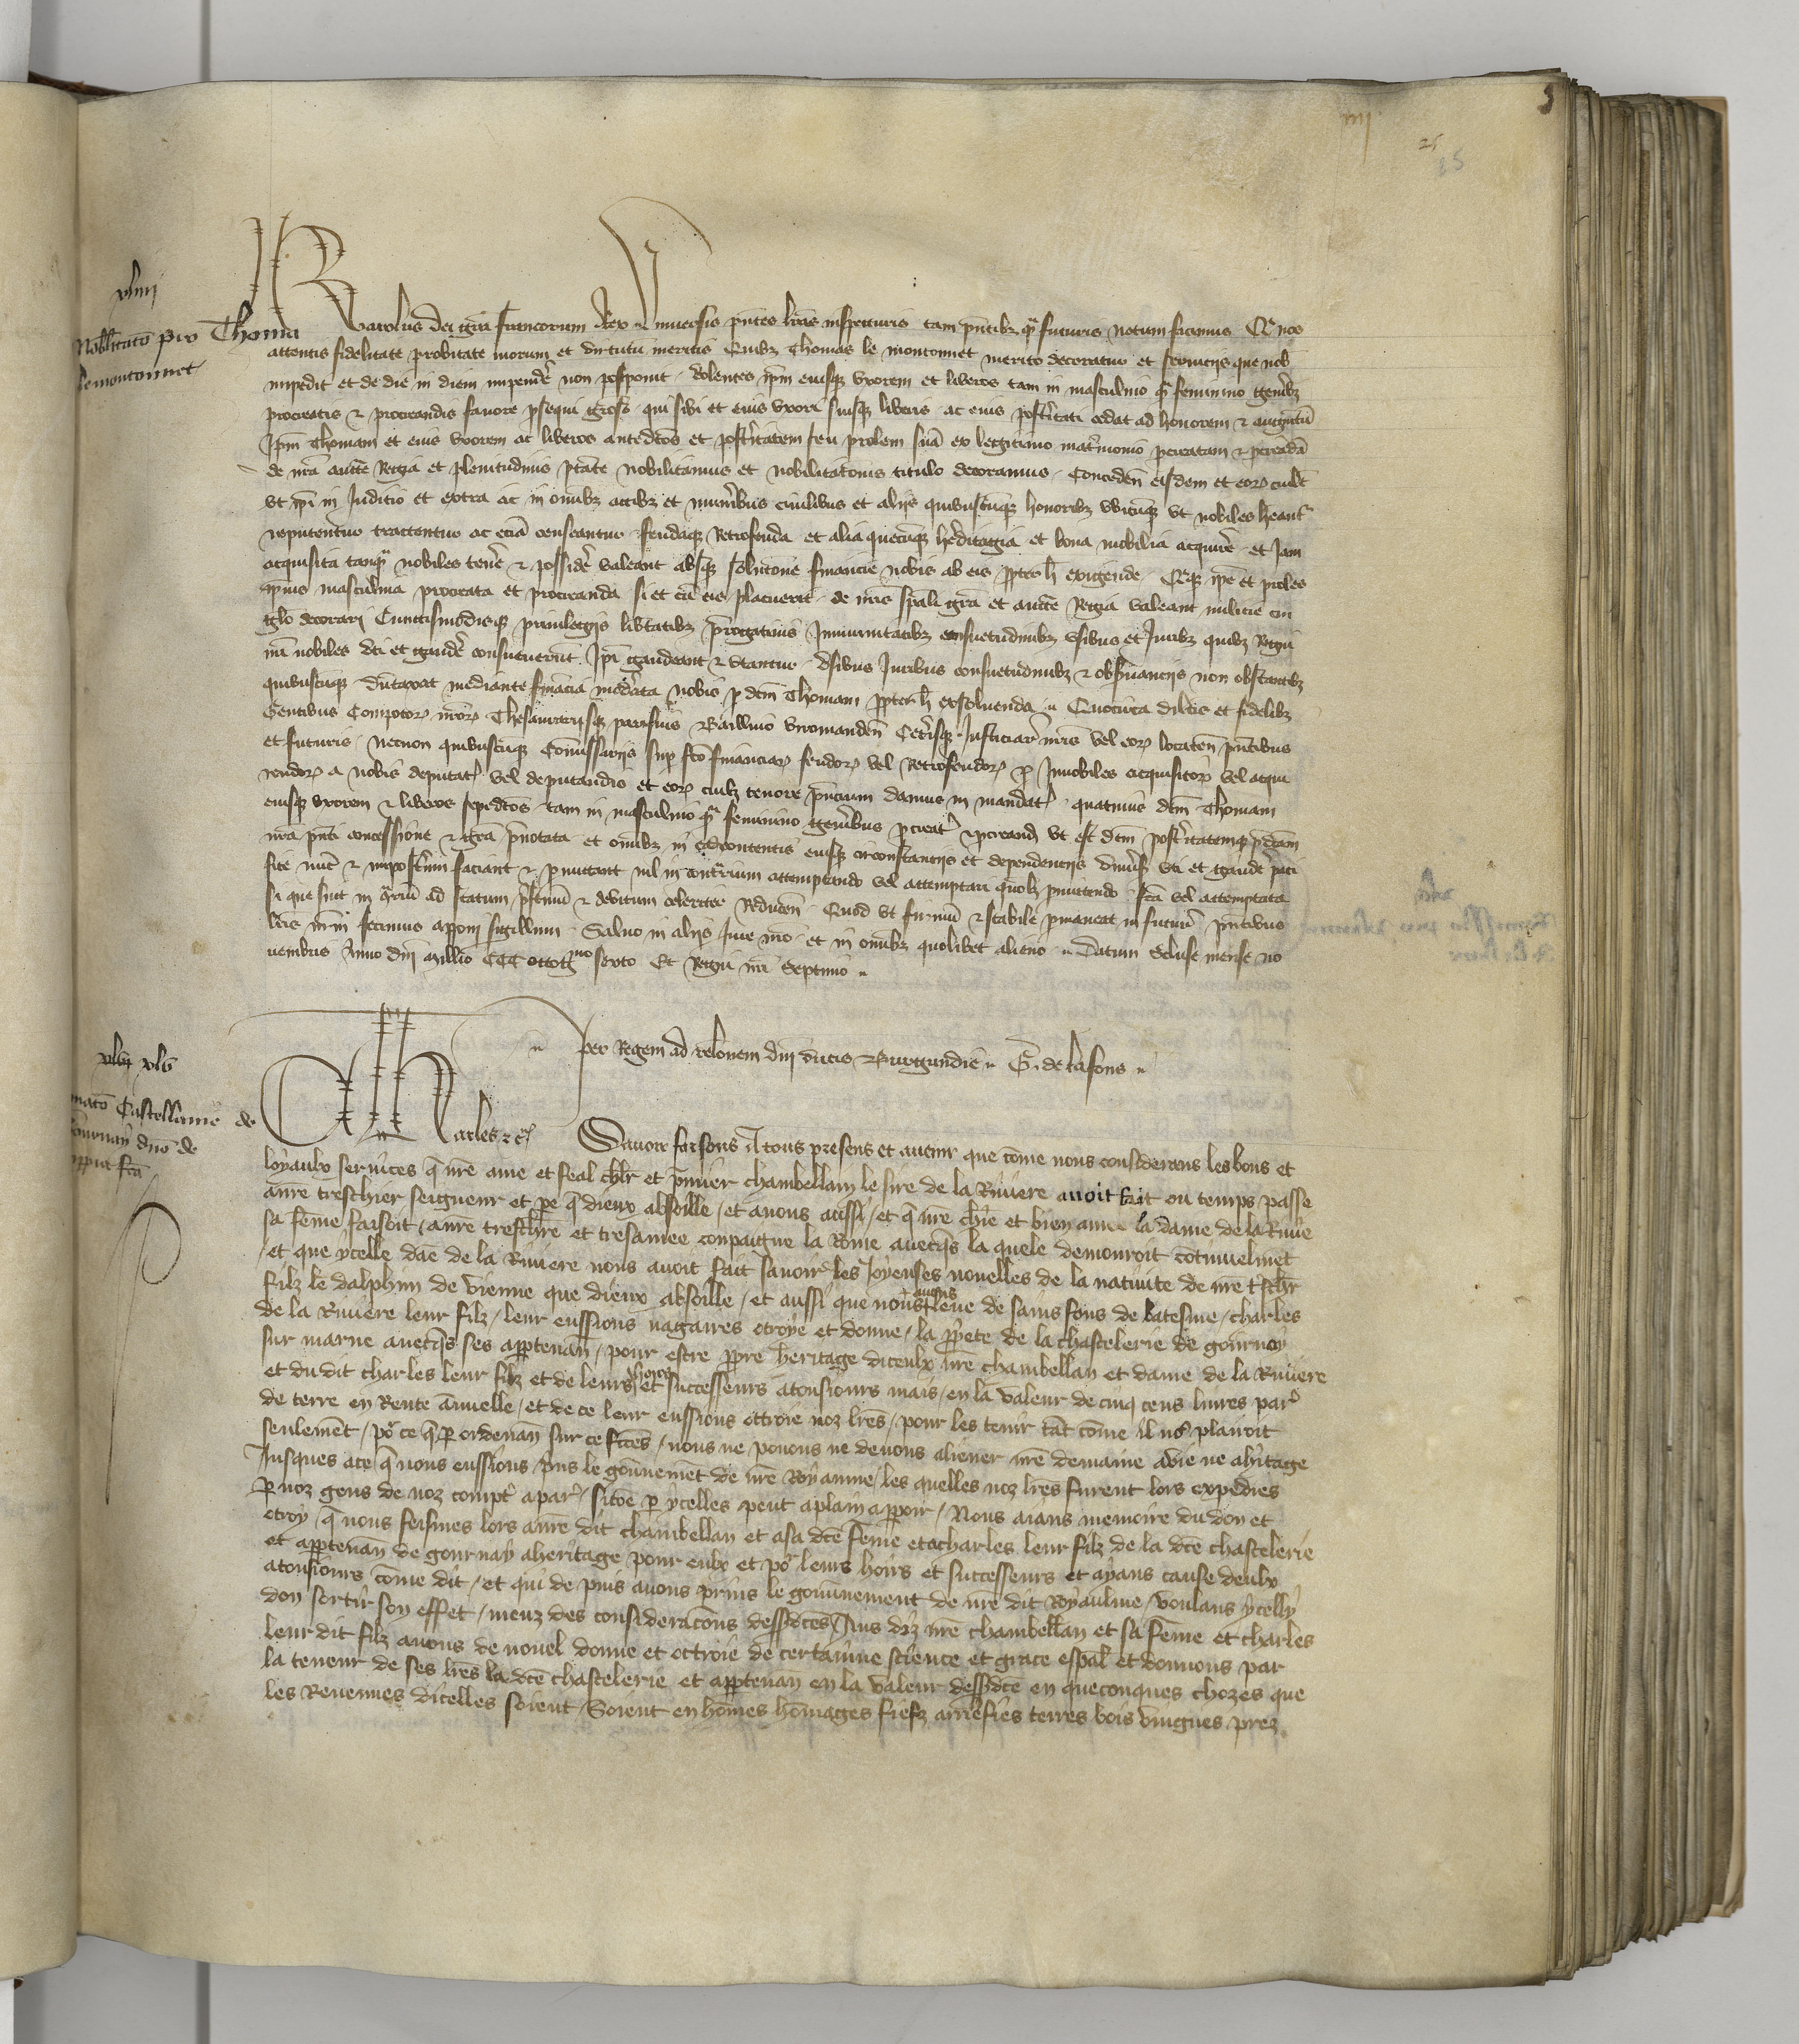 iiij
25
25
xliiij
Nobilitato pro Thoma
le montonnet
Karolus dei gra francorum Rex universis pntes lras inspecturis tam pntibz qm futuris Notum facimus Q nos
attentis fidelitate probitate morum et virtutum meritis Quibz Thomas le montonnet merito decoratur et serviciis que nob
impedit et de die in diem impendere non postponit volentes ipm eiusqz uxorem et liberos tam in masculino qm feminino genere
procreatis et procreandis favore psequi groso qui sibi et eius uxori suisqz liberis ac eius posteritati cedat ad honorem et augmtu
Ipm Thomam et eius uxorem ac liberos antedcos et posteritatem seu prolem sua ex legitimo matrimonio pcreatam et pcreanda
de nra aucte Regia et plenitudinis ptate nobilitamus et nobilitatonis titulo decoramus Conceden eisdem et eor cuilt
ut ipi in Judicio et extra ac in omibz actibz et muneribus civilibus et aliis quibuscumqz honoribz ubicumqz ut nobiles heantr
reputentur tractentur ac etia censeantur feudaqz Retrofeuda et alia quecumqz hereditagia et bona nobilia acquirere et Jam
acquisita tanqm nobiles tenere et possidere valeant absqz solutione financie nobis ab eis ppter h exigende Qqz ipe et proles
ipius masculina procreata et procreanda si et cu eis placuerit de nris spali gra et aucte Regia valeant milicie cin
glo decorari Cunctismodisqz privilegiis libtatibz prerogativis Immunitatibz consuetudinibz usibus et Juribz quibz Regni
nri nobiles uti et gaudere consueverut Ipi gaudeant et utantur usibus Juribus consuetudinibz et observanciis non obstantibz
quibuscumqz dutaxat mediante finacia moderata nobis p dcm Thomam ppter h exsolvenda Quocirca dilcis et fidelibz
Gentibus Compotor nror Thesaurariisqz parisius Baillivo viromanden Ceterisqz Justiciar nris vel eor locaten pntibus
et futuris Necnon quibuscumqz Comissariis sup fco financiar feudor vel Retrofeudor p Innobiles acquisitor vel acqui
rendor a nobis deputat vel deputandis et eor cuilz tenore pncium damus in mandat quatinus dcm Thomam
eiusqz uxorem et liberos sepedcos tam in masculino qm feminino generibus pcreat et pcreand ut est dcm posteritatemqz pdcam
nra pnti concessione et gra prenotata et omibz in ea contentis eiusqz circonstanciis et dependenciis universis uti et gaudere paci
fice nuc et imposterum faciant et pmittant nil in contrarium attemptando vel attemptari quolz pmittendo fca vel attemptata
si que sint in qriu ad statum pstinu et debitum celeriter Reducen Quod ut firmu et stabile pmaneat in futuru pntibus
lris nrm fecimus apponi sigillum Salvo in aliis Jure nro et in omibz quolibet alieno Datum Scluse mense no
vembris Anno dni Millio CCC octogmo sexto Et Regni nri Septimo
per Regem ad relonem dni ducis Burgundie G. de la fons
xlvij xlv
Castellanie de
gournay dno de
fca
Charles etc Savoir faisons A tous presens et avenir que come nous considerans les bons et
loyaulx services q nre ame et feal chlr et pmier chambellam le sire de la Riviere avoit fait ou temps passe
anre treschier seigneur et pe q dieux absoille et anous aussi et q nre chie et bien amee la dame de la Rivie
sa feme faisoit anre treschre et tresamee conpaigne la Roine avecqs la quele demouroit cotinuelmet
et que ycelle dae de la Riviere nous avoit fait savoir les Joyeuses nouelles de la nativite de nre treschr
filz le dalphin de vienne que dieux absoille et aussi que nous avons leve de sains fons de batesme charles
de la Riviere leur filz leur eussions nagaires otroye et donne la ppriete de la chastelerie de gournay
sur marne avecqs ses appartenan pour estre ppre heritage diceulx nre chambellan et dame de la Riviere
et du dit charles leur filz et de leurs hoirs et successeurs atousiours mais en la valeur de cinq cens livres par
de terre en Rente annuelle et de ce leur eussions ottroie noz lres pour les tenir tat come il no plairoit
seulemet po ce q p ordenan sur ce fces nous ne povons ne devons aliener nre demaine avie ne aheritage
Jusques ace q nous eussions pns le gouvnemet de nre Royaume les quelles noz lres furent lors expedies
p noz gens de noz compt apar sicoe p ycelles peut aplain apparoir Nous aians memoire du don et
otroy q nous feismes lors anre dit chambellan et asa dce feme et acharles leur filz de la dce chastelerie
et appartenan de gournay aheritage pour eulx et po leurs hoirs et successeurs et ayans cause deulx
atousiours come dit et qui de puis avons prins le gouvernement de nre dit Royaulme voulans ycelly
don sortir son effet meuz des consideracons dessdces Aus diz nre chambellan et sa feme et charles
leur dit filz avons de nouel donne et ottroie de certainne science et grace espal et donnons par
la teneur de ses lres la dce chastelerie et appartenan en la valeur dessdce en queconques chozes que
les Revenues dicelles soient Soient en homes homages fiefz arrefies terres bois vingnes prez